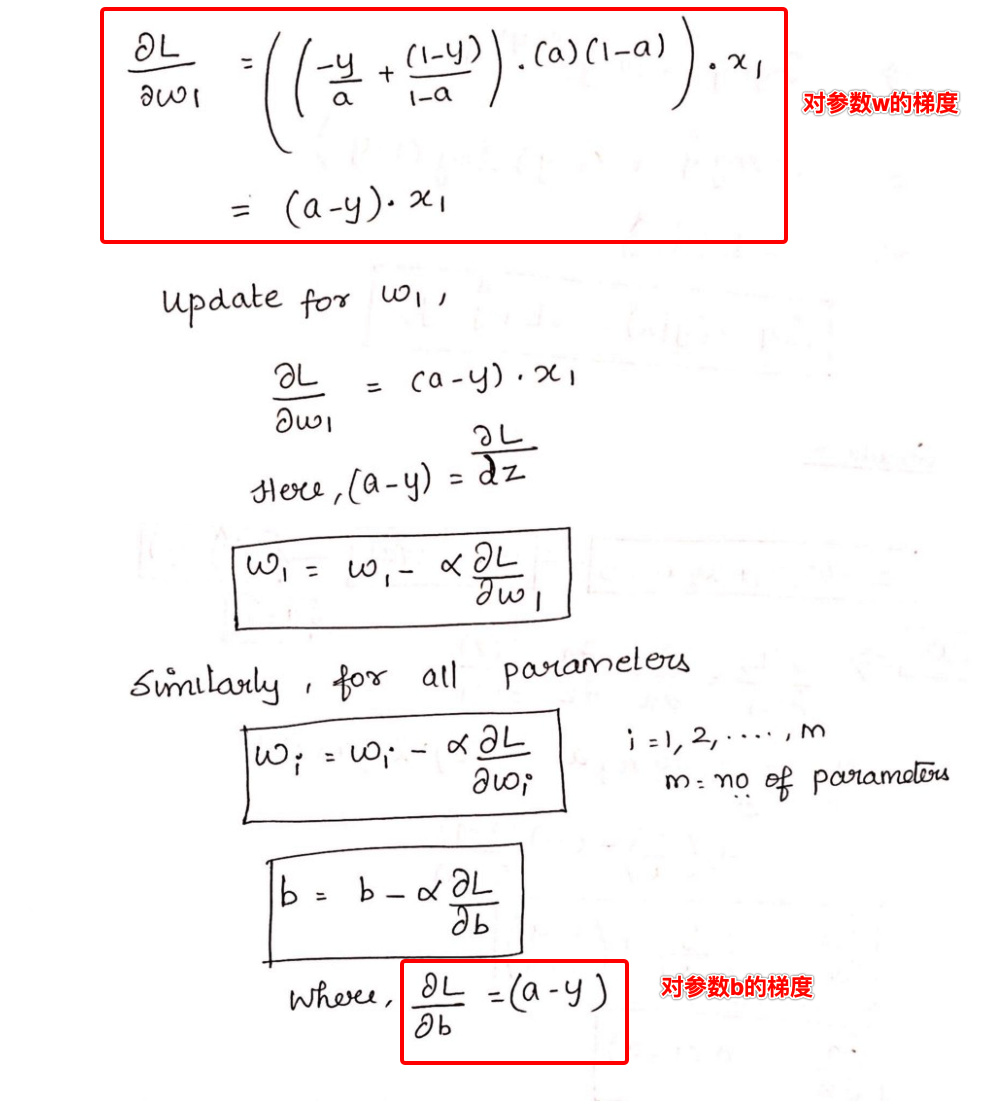 ∂L/∂w₁ = ((-y/a + (1-y)/1-a) · (a)(1-a)) · x₁
对参数w的梯度
= (a-y) · x₁
update for w₁,
∂L/∂w₁ = (a-y) · x₁
Here, (a-y) = ∂L/dz
w₁ = w₁ - α ∂L/∂w₁
Similarly, for all parameters
wᵢ = wᵢ - α ∂L/∂wᵢ
i = 1, 2, ...., m
m = no of parameters
b = b - α ∂L/∂b
where, ∂L/∂b = (a-y)
对参数b的梯度